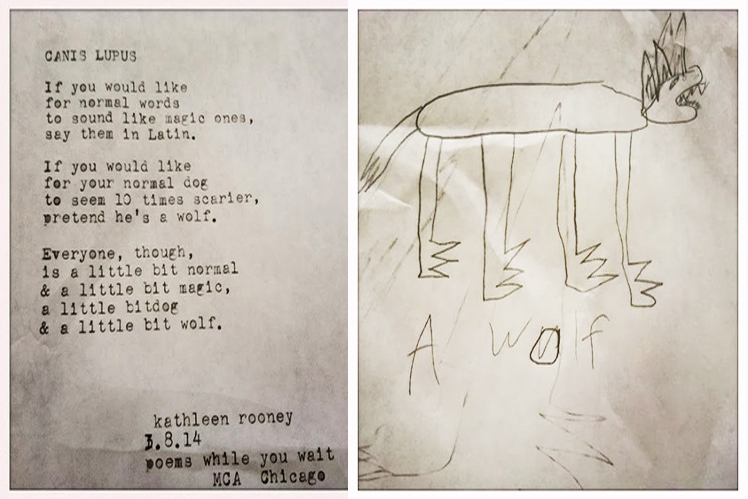 CANIS LUPUS
If you would like
for normal words
to sound like magic ones,
say them in Latin.
If you would like
for your normal dog
to seem 10 times scarier,
pretend he's a wolf.
Everyone, though,
is a little bit normal
& a little bit magic,
a little bitdog
& a little bit wolf.
kathleen rooney
3.8.14
poems while you wait
MCA Chicago
A wolf